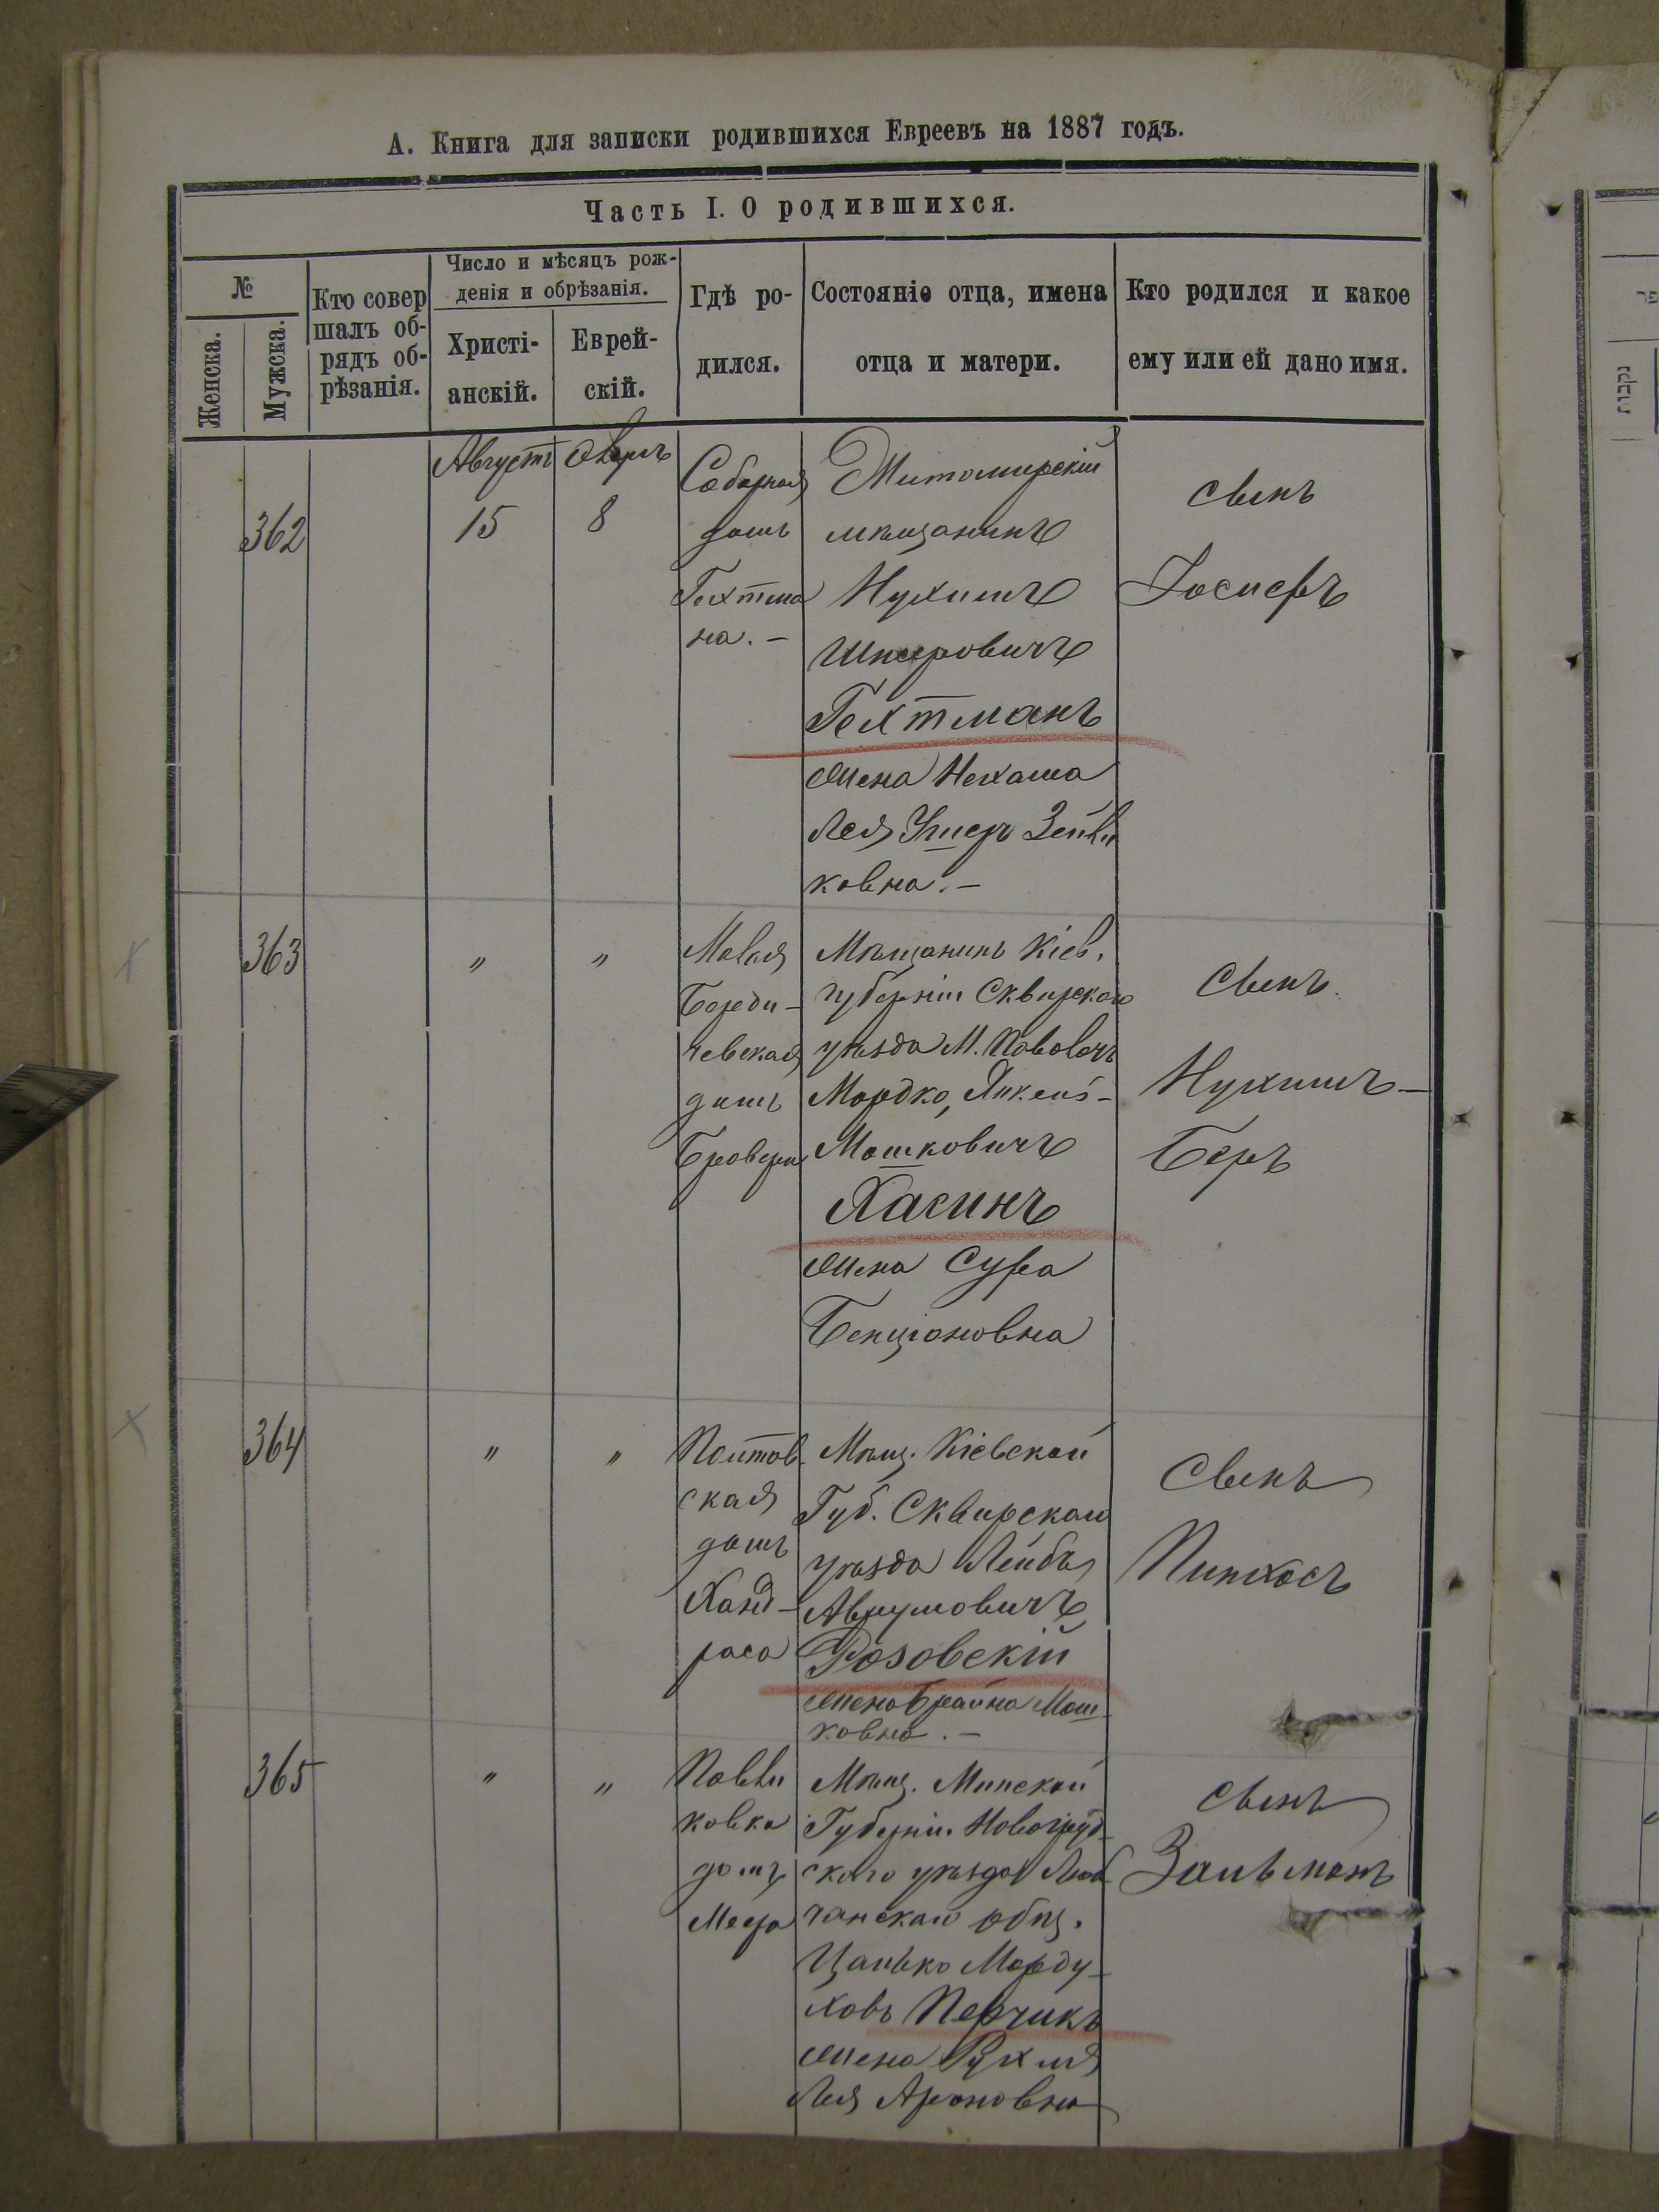 А. Книга для записки родившихся Евреевъ на 1887 годъ.
Часть I. О родившихся.
№
Женска.
Мужска.
Кто совер
шалъ об-
рядъ об-
рѣзанія.
Число и мѣсяцъ рож-
денія и обрѣзанія.
Христі-
анскій.
Еврей-
скій.
Гдѣ ро-
дился.
Состояніе отца, имена
отца и матери.
Кто родился и какое
ему или ей дано имя.
362
Августъ
15
8
Соборная
домъ
Гехтма
на. –
Житомирскій
мѣщанинъ
Нухимъ
Шмеровичъ
Гехтманъ
жена Нехама
Лея Ушеръ Зейли
ковна. –
сынъ
Іосифъ
363
"
"
Малая
Берди-
чевская
домъ
Бровера
Мѣщанинъ Кіев.
губерніи Сквирскаго
уѣзда М. Паволочъ
Мордко, Янкель-
Мошковичъ
Хасинъ
жена Сура
Бенціоновна
Сынъ
Нухимъ-
Беръ
364
"
"
домъ
Ханд-
раса
Мѣщ. Кіевской
Губ. Сквирскаго
уѣзда Лейбъ
Аврумовичъ
Розовскій
жена Брайна Мош
ковна. –
Сынъ
Пинхасъ
365
"
"
ковка
домъ
Мѣщ. Минской
Губерніи Новогруд
скаго уѣзда Люб
чанскаго общ.
Морду-
ховъ Перчикъ
жена Рухля
Лея Ароновна
сынъ
Зальманъ
נקבות